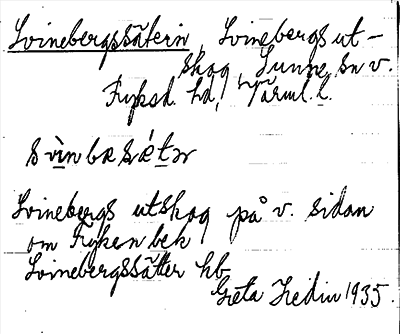 Svinebergssätern, Svinebergs ut-
skog, Sunne sn v.
Fryksd. hd, Värml. l.
svìnbæsǽtər
Svinebergs utskog på v. sidan
om Fryken bek
Svinebergssätter hb
Greta Hedin 1935.